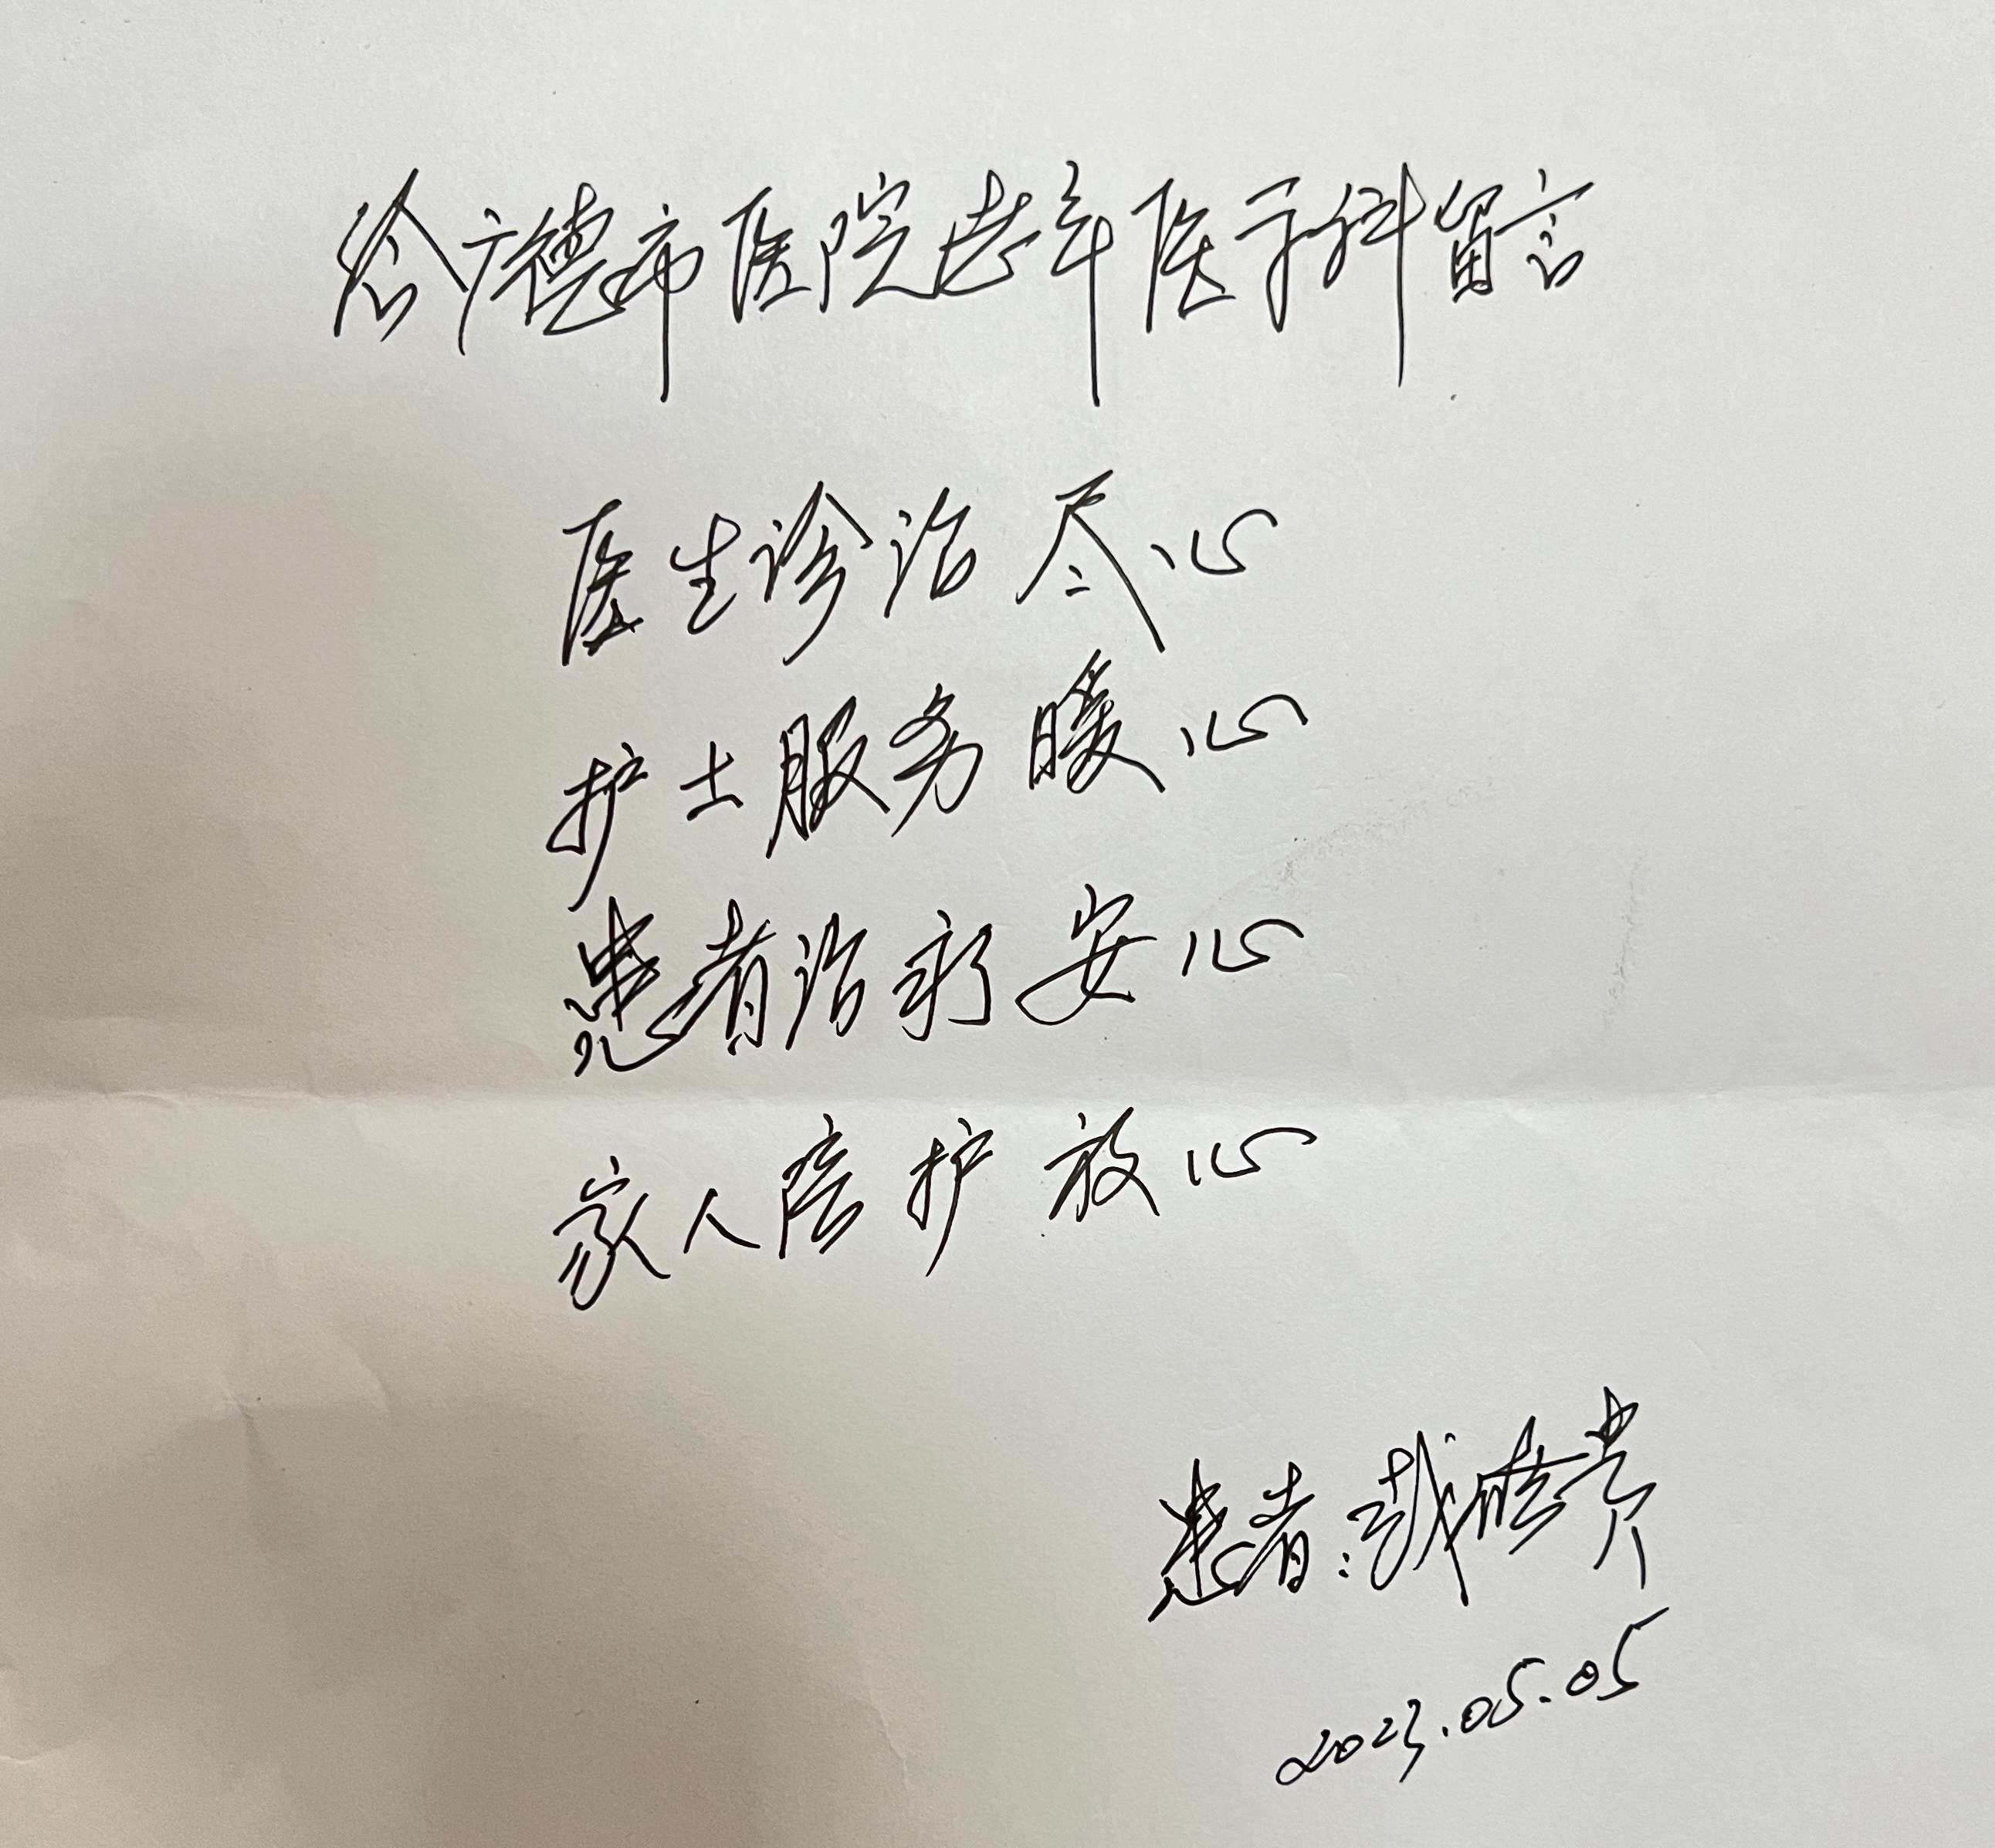 给广德市医院老年医学科留言
医生诊治尽心
护士服务暖心
患者治疗安心
家人陪护放心
患者:
2023.05.05